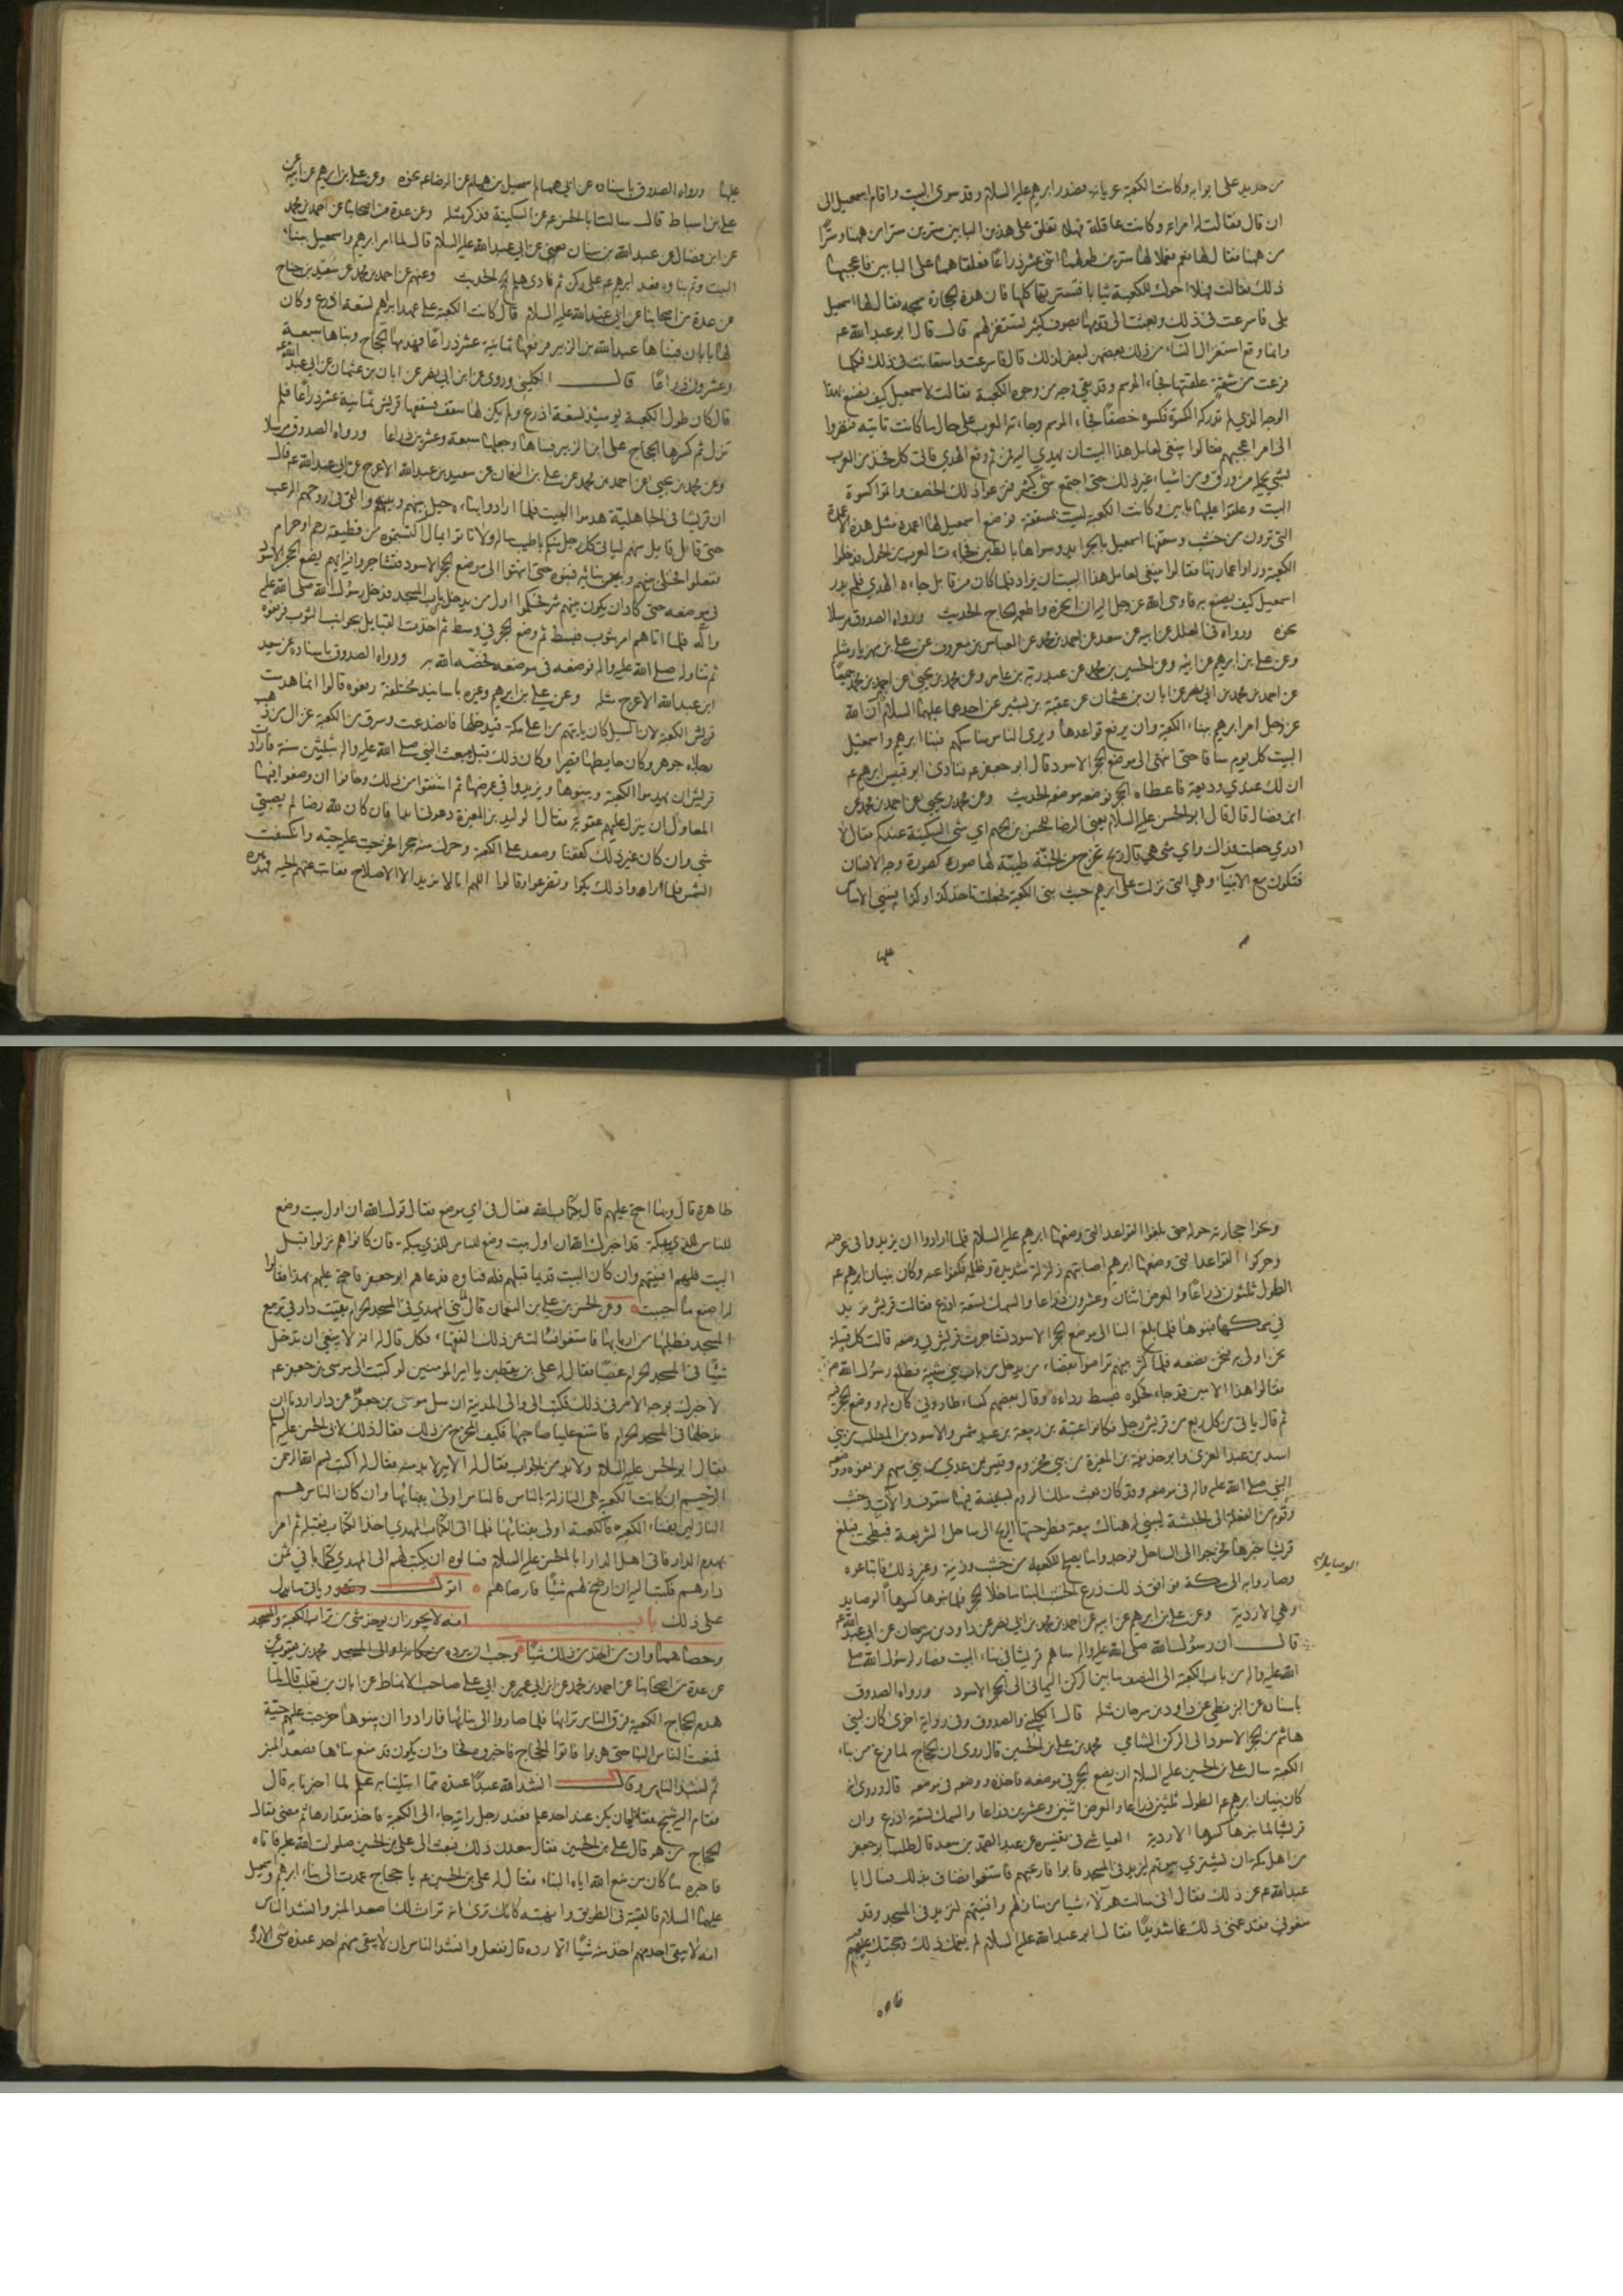 من حديد على ابوابه وكانت الكعبة عريانة فصدر ابرهيم عليه السلام وقد سوى البيت واقام اسمعيل الى
ان قال فقالت له امراته وكانت عاقلة فهلا تعلق على هذين البابين سترين سترا من ههنا وسترا
من ههنا فقال لها نعم فعملا لهما سترين طولهما اثنى عشر ذراعا فعلقاهما على البابين فاعجبهما
ذلك فقالت فهلا احوك للكعبة ثيابا فتسترها كلها فان هذه الحجارة سمجة فقال لها اسمعيل
بلى فاسرعت في ذلك وبعثت الى قومها بصوف كثير تستغزلهم قال قال ابو عبد الله ع
وانما وقع استغزال النساء من ذلك بعضهن لبعض لذلك قال فاسرعت واستعانت في ذلك فكلما
فرغت من شقة علقتها فجاء الموسم وقد بقي وجه من وجوه الكعبة فقالت لاسمعيل كيف نصنع بهذا
الوجه الذي لم تدركه الكسوة فكسوه خصفا فجاء الموسم وجاءته العرب على حال ما كانت تاتيه فنظروا
الى امر اعجبهم فقالوا ينبغي لعامل هذا البيت ان يهدي اليه فمن ثم وقع الهدي فاتى كل فخذ من العرب
بشي يحمل من ورق ومن اشياء غير ذلك حتى اجتمع شي كثير فنزعوا ذلك الخصف واتموا كسوة
البيت وعلقوا عليها بابين وكانت الكعبة ليست بمسقفة فوضع اسمعيل لها اعمدة مثل هذه الاعمدة
التي ترون من خشب وسقفها اسمعيل بالجرايد وسواها بالطين فجاءت العرب من الحول فدخلوا
الكعبة وراوا عمارتها فقالوا ينبغي لعامل هذا البيت ان يزاد فلما كان من قابل جاءه الهدي فلم يدر
اسمعيل كيف يصنع به فاوحى الله عز وجل اليه ان انحره واطعمه الحاج الحديث ورواه الصدوق مرسلا
نحوه ورواه في العلل عن ابيه عن سعد عن احمد بن محمد عن العباس بن معروف عن علي بن مهزيار مثله
وعن علي بن ابرهيم عن ابيه وعن الحسين بن محمد عن عبدويه بن عامر وعن محمد بن يحيى عن احمد بن محمد جميعا
عن احمد بن محمد بن ابي نصر عن ابان بن عثمان عن عقبة بن بشير عن احدهما عليهما السلام ان الله
عز وجل امر ابرهيم ببناء الكعبة وان يرفع قواعدها ويرى الناس مناسكهم فبنا ابرهيم واسمعيل
البيت كل يوم سافا حتى انتهى الى موضع الحجر الاسود قال ابو جعفر ع فنادى ابو قبيس ابرهيم ع
ان لك عندي وديعة فاعطاه الحجر فوضعه موضعه الحديث وعن محمد بن يحيى عن احمد بن محمد عن
ابن فضال قال قال ابو الحسن عليه السلام يعني الرضا للحسن بن الجهم اي شي السكينة عندكم فقال لا
ادري جعلت فداك واي شي هي قال ريح تخرج من الجنة طيبة لها صورة كصورة وجه الانسان
فتكون مع الانبياء وهي التي نزلت على ابرهيم حيث بنى الكعبة فجعلت تاخذ كذا وكذا فبنى الاساس
عليها
عليها ورواه الصدوق باسناده عن ابي همام اسمعيل بن همام عن الرضا ع نحوه وعن علي بن ابرهيم عن ابيه عن
علي بن اسباط قال سالت ابا الحسن ع عن السكينة فذكر مثله وعن عدة من اصحابنا عن احمد بن محمد
عن ابن فضال عن عبد الله بن سنان عن ابي عبد الله عليه السلام قال لما امر ابرهيم واسمعيل ببناء
البيت وتم بناوه فقعد ابرهيم ع على ركن ثم نادى هلم الحج الحديث وعنهم عن احمد بن محمد عن سعيد بن جناح
عن عدة من اصحابنا عن ابي عبد الله عليه السلام قال كانت الكعبة على عهد ابراهيم تسعة اذرع وكان
لها بابان فبناها عبد الله بن الزبير فرفعها ثمانية عشر ذراعا فهدمها الحجاج وبناها سبعة
وعشرون ذراعا قال الكليني وروى عن ابن ابي نصر عن ابان بن عثمان عن ابي عبد الله ع
قال كان طول الكعبة يومئذ تسعة اذرع ولم يكن لها سقف فسقفها قريش ثمانية عشر ذراعا فلم
تزل ثم كسرها الحجاج على ابن الزبير فبناها وجعلها سبعة وعشرين ذراعا ورواه الصدوق مرسلا
وعن محمد بن يحيى عن احمد بن محمد عن علي بن النعمان عن سعيد بن عبد الله الاعرج عن ابي عبد الله ع قال
ان قريشا في الجاهلية هدموا البيت فلما ارادوا بناءه حيل بينهم وبينه والقي في روعهم الرعب
حتى قائل قائل منهم لياتي كل رجل منكم باطيب ماله ولا تاتوا بمال اكتسبتموه من قطيعة رحم او حرام
ففعلوا فخلى بينهم وبين بنائه فبنوه حتى انتهوا الى موضع الحجر الاسود فتشاجروا فيه ايهم يضع الحجر الاسود
في موضعه حتى كاد ان يكون بينهم شر فحكموا اول من يدخل باب المسجد فدخل رسول الله صلى الله عليه
واله فلما اتاهم امر بثوب فبسط ثم وضع الحجر في وسطه ثم اخذت القبايل بجوانب الثوب فرفعوه
ثم تناوله صلى الله عليه واله فوضعه في موضعه فخصه الله به ورواه الصدوق باسناده عن سعيد
ابن عبد الله الاعرج مثله وعن علي بن ابرهيم وغيره باسانيد مختلفة رفعوه قالوا انما هدمت
قريش الكعبة لان السيل كان ياتيهم من اعلى مكة فيدخلها فانصدعت وسرق من الكعبة غزال من ذهب
رجلاه جوهر وكان حايطها قصيرا وكان ذلك قبل مبعث النبي صلى الله عليه واله بثلثين سنة فارادت
قريش ان يهدموا الكعبة ويبنوها ويزيدوا في عرضها ثم اشفقوا من ذلك وخافوا ان وضعوا فيها
المعاول ان ينزل عليهم عقوبة فقال الوليد بن المغيرة دعوني ابدا فان كان لله رضا لم يصبني
شي وان كان غير ذلك كففنا وصعد على الكعبة وحرك منه حجرا فخرجت عليه حية وانكسفت
الشمس فلما راوا ذلك بكوا وتضرعوا وقالوا اللهم انا لا نريد الا الاصلاح فغابت عنهم الحية فهدموه
ونحوا حجارته حوله حتى بلغوا القواعد التي وضعها ابرهيم عليه السلام فلما ارادوا ان يزيدوا في عرضه
وحركوا القواعد التي وضعها ابرهيم اصابتهم زلزلة شديدة وظلمة فكفوا عنه وكان بنيان ابرهيم ع
الطول ثلثون ذراعا والعرض اثنان وعشرون ذراعا والسمك تسعة اذرع فقالت قريش نزيد
في سمكها فبنوها فلما بلغ البناء الى موضع الحجر الاسود تشاجرت قريش في وضعه قالت كل قبيلة
نحن اولى به نحن نضعه فلما كثر بينهم تراضوا بقضاء من يدخل من باب بني شيبة فطلع رسول الله ص
فقالوا هذا الامين قد جاء فحكموه فبسط رداءه وقال بعضهم كساء طاروني كان له ووضع الحجر فيه
ثم قال ياتي من كل ربع من قريش رجل فكانوا عتبة بن ربيعة بن عبد شمس والاسود بن المطلب من بني
اسد بن عبد العزى وابو حذيفة بن المغيرة من بني مخزوم وقيس بن عدي من بني سهم فرفعوه ووضعه
النبي صلى الله عليه واله في موضعه وقد كان بعث ملك الروم بسفينة فيها سقوف والات وخشب
وقوم من الفعلة الى الحبشة ليبني له هناك بيعة فطرحتها الريح الى ساحل الشريعة فبطحت فبلغ
قريشا خبرها فخرجوا الى الساحل فوجدوا ما يصلح للكعبة من خشب وزينة وغير ذلك فابتاعوه
وصاروا به الى مكة فوافق ذلك ذرع الخشب البناء ما خلا الحجر فلما بنوها كسوها الوصايد
الوصايل
وهي الاردية وعن علي بن ابرهيم عن ابيه عن احمد بن محمد بن ابي نصر عن داود بن سرحان عن ابي عبد الله ع
قال ان رسول الله صلى الله عليه واله ساهم قريشا في بناء البيت فصار لرسول الله صلى
الله عليه واله من باب الكعبة الى النصف ما بين الركن اليماني الى الحجر الاسود ورواه الصدوق
باسناده عن البزنطي عن داود بن سرحان مثله قال الكليني والصدوق وفي رواية اخرى كان لبني
هاشم من الحجر الاسود الى الركن الشامي محمد بن علي بن الحسين قال روى ان الحجاج لما فرغ من بناء
الكعبة سال علي بن الحسين عليه السلام ان يضع الحجر في موضعه فاخذه ووضعه في موضعه قال وروى انه
كان بنيان ابرهيم ع الطول ثلثين ذراعا والعرض اثنين وعشرين ذراعا والسمك تسعة اذرع وان
قريشا لما بنوها كسوها الاردية العياشي في تفسيره عن عبد الصمد بن سعد قال طلب ابو جعفر
من اهل مكة ان يشتري بيوتهم ليزيد في المسجد فابوا فارغبهم فامتنعوا فضاق بذلك فسال ابا
عبد الله ع عن ذلك فقال اني سالت هولاء شيا من منازلهم وافنيتهم لنزيد في المسجد وقد
منعوني فقد غمني ذلك غما شديدا فقال ابو عبد الله عليه السلام لم يغمك ذلك وحجتك عليهم
ظاهرة
ظاهرة قال وبما احتج عليهم قال بكتاب الله فقال في اي موضع فقال قول الله ان اول بيت وضع
للناس للذي ببكة قد اخبرك الله ان اول بيت وضع للناس للذي ببكة فان كانوا هم نزلوا قبل
البيت فلهم افنيتهم وان كان البيت قديما قبلهم فله فناوه فدعاهم ابو جعفر فاحتج عليهم بهذا فقالوا
له اصنع ما احببت وعن الحسن بن علي بن النعمان قال لما بنى المهدي في المسجد الحرام بقيت دار في تربيع
المسجد فطلبها من اربابها فامتنعوا فسالت عن ذلك الفقهاء فكل قال له انه لا ينبغي ان تدخل
شيئا في المسجد الحرام غصبا فقال له علي بن يقطين يا امير المومنين لو كتبت الى موسى بن جعفر ع
لاخبرك بوجه الامر في ذلك فكتب الى والي المدينة ان سل موسى بن جعفر عن دار اردنا ان
ندخلها في المسجد الحرام فامتنع علينا صاحبها فكيف المخرج من ذلك فقال ذلك لابي الحسن عليه السلام
فقال ابو الحسن عليه السلام ولا بد من الجواب فقال له الامر لا بد منه فقال له اكتب بسم الله الرحمن
الرحيم ان كانت الكعبة هي النازلة بالناس فالناس اولى بفنائها وان كان الناس هم
النازلين بفناء الكعبة فالكعبة اولى بفنائها فلما اتى الكتاب المهدي اخذ الكتاب فقبله ثم امر
بهدم الدار فاتى اهل الدار ابا الحسن عليه السلام فسالوه ان يكتب لهم الى المهدي كتابا في ثمن
دارهم فكتب اليه ان ارضخ لهم شيئا فارضاهم اقول وياتي ما يدل
على ذلك باب انه لا يجوز ان يوخذ شي من تراب الكعبة والمسجد
وحصاهما وان من اخذ من ذلك شيئا وجب ان يرده محمد بن يعقوب عن
عن عدة من اصحابنا عن احمد بن محمد عن ابن ابي عمير عن ابي علي صاحب الانماط عن ابان بن تغلب قال لما
هدم الحجاج الكعبة فرق الناس ترابها فلما صاروا الى بنائها فارادوا ان يبنوها خرجت عليهم حية
فمنعت الناس البناء حتى هربوا فاتوا الحجاج فاخبروه فخاف ان يكون قد منع بناءها فصعد المنبر
ثم نشد الناس وقال انشد الله عبدا عنده مما ابتلينا به علم لما اخبرنا به قال
فقام اليه شيخ فقال ان يكن عند احد علم فعند رجل رايته جاء الى الكعبة فاخذ مقدارها ثم مضى فقال
الحجاج من هو قال علي بن الحسين فقال معدن ذلك فبعث الى علي بن الحسين صلوات الله عليه فاتاه
فاخبره ما كان من منع الله اياه البناء فقال له علي بن الحسين ع يا حجاج عمدت الى بناء ابرهيم واسمعيل
عليهما السلام فالقيته في الطريق وانتهبته كانك ترى انه تراث لك اصعد المنبر وانشد الناس
انه لا يبقى احد منهم اخذ منه شيئا الا رده قال ففعل وانشد الناس ان لا يبقى منهم احد عنده شي الا رده